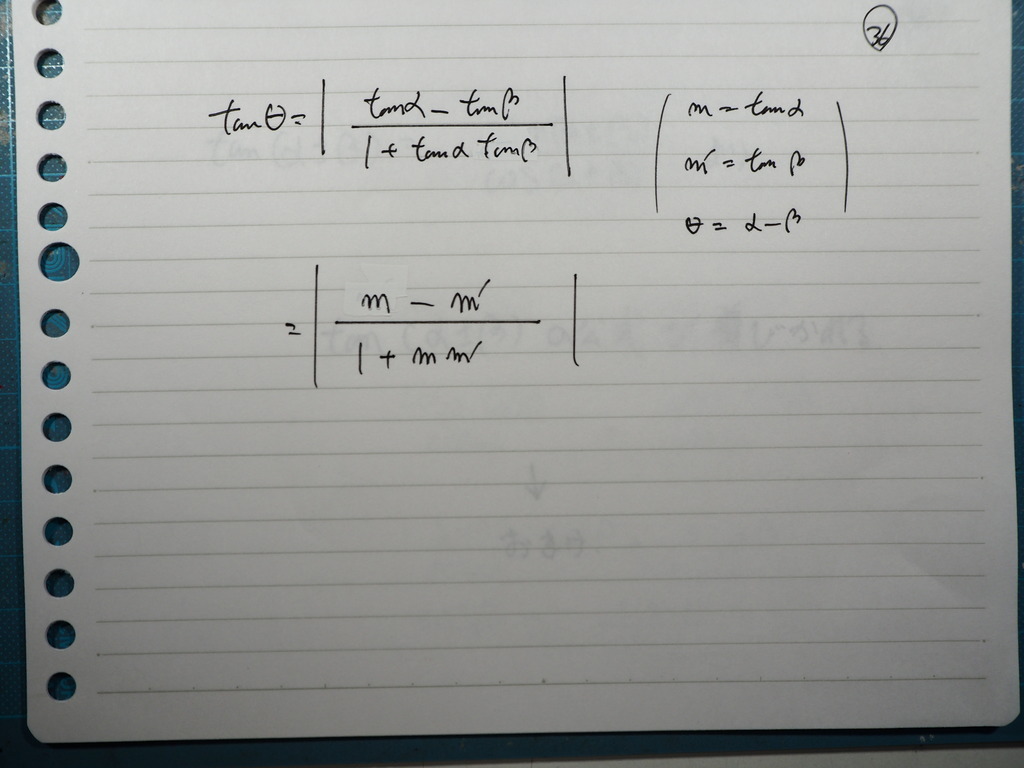 36
tanθ = | (tanα − tanβ) / (1 + tanα tanβ) |
( m = tanα
m′ = tan β
θ = α−β )
= | (m − m′) / (1 + m m′) |